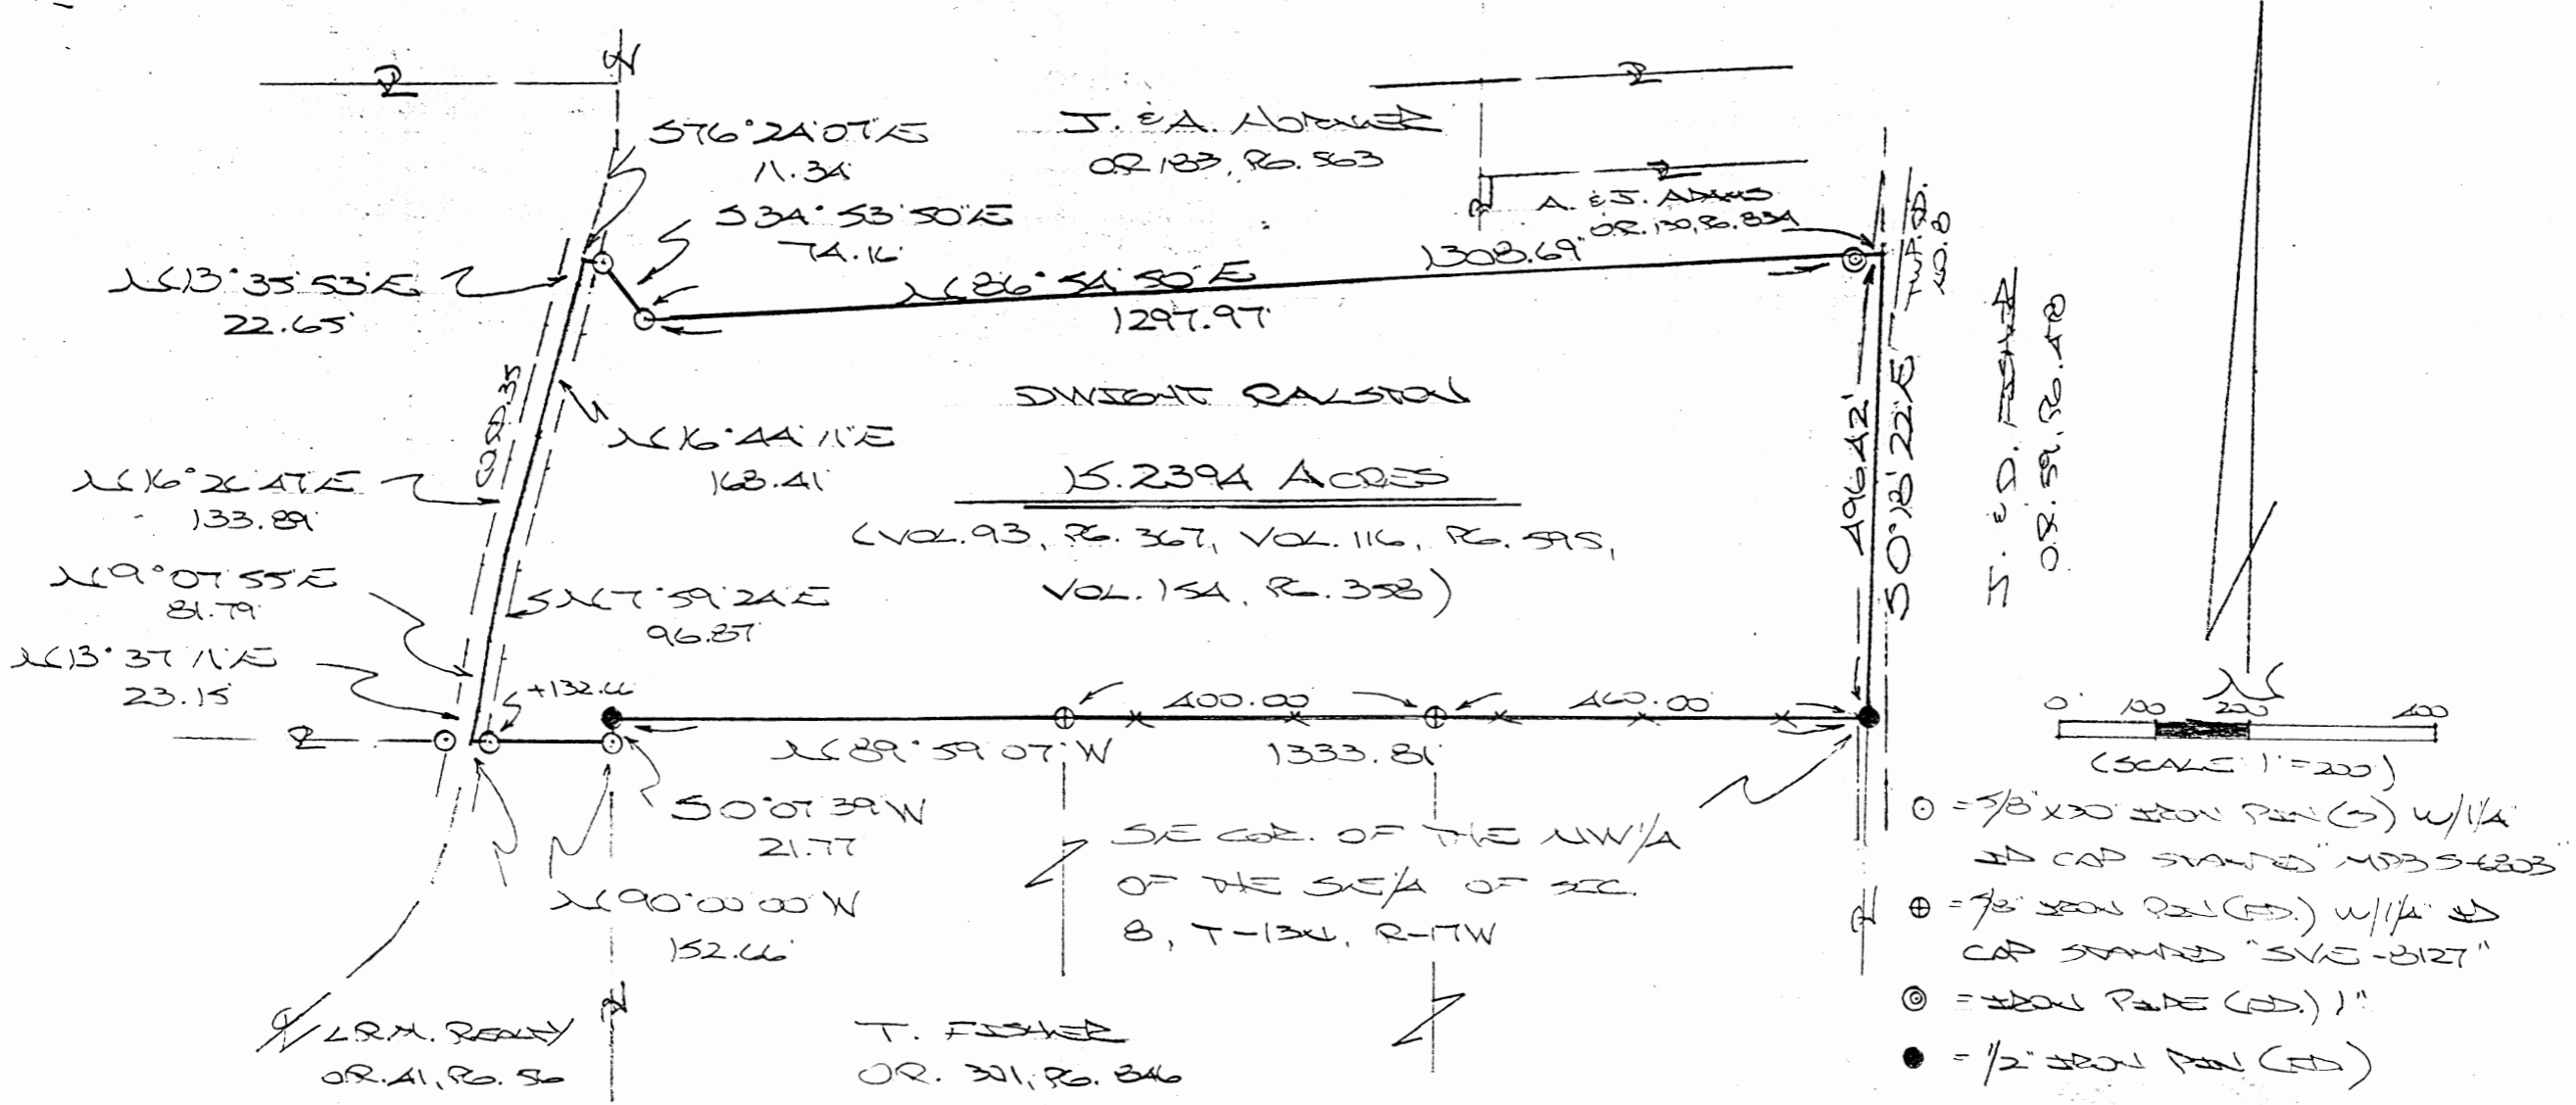 S76°24'07"E
11.34'
J. & A. HORNER
OR 183, PG. 563
S34°53'50"E
74.16'
A. & J. ADAMS
OR. 130, PG. 834
TWP. RD.
NO. 8
N13°35'53"E
22.65'
1308.69'
N86°54'50"E
1297.97'
CO. RD. 35
DWIGHT RALSTON
N16°44'11"E
168.41'
15.2394 ACRES
(VOL. 93, PG. 367, VOL. 116, PG. 595,
VOL. 154, PG. 358)
N16°26'47"E
133.89'
N9°07'55"E
81.79'
N7°59'24"E
96.87'
N13°37'11"E
23.15'
496.42'
S0°18'22"E
& D. FISHER
O.R. 59, PG. 478
+132.66
400.00
460.00
N89°59'07"W
1333.81'
S0°07'39"W
21.77
N90°00'00"W
152.66'
SE COR. OF THE NW1/4
OF THE SE1/4 OF SEC.
8, T-13N, R-17W
L.R.M. REALTY
OR. 41, PG. 56
T. FISHER
OR. 301, PG. 846
N
0' 100 200 400
(SCALE: 1"=200')
= 5/8"X30" IRON PIN(S) W/1 1/4"
ID CAP STAMPED "MPB S-6803"
= 5/8" IRON PIN (FD.) W/1 1/4" ID
CAP STAMPED "SVE-8127"
= IRON PIPE (FD.) 1"
= 1/2" IRON PIN (FD)